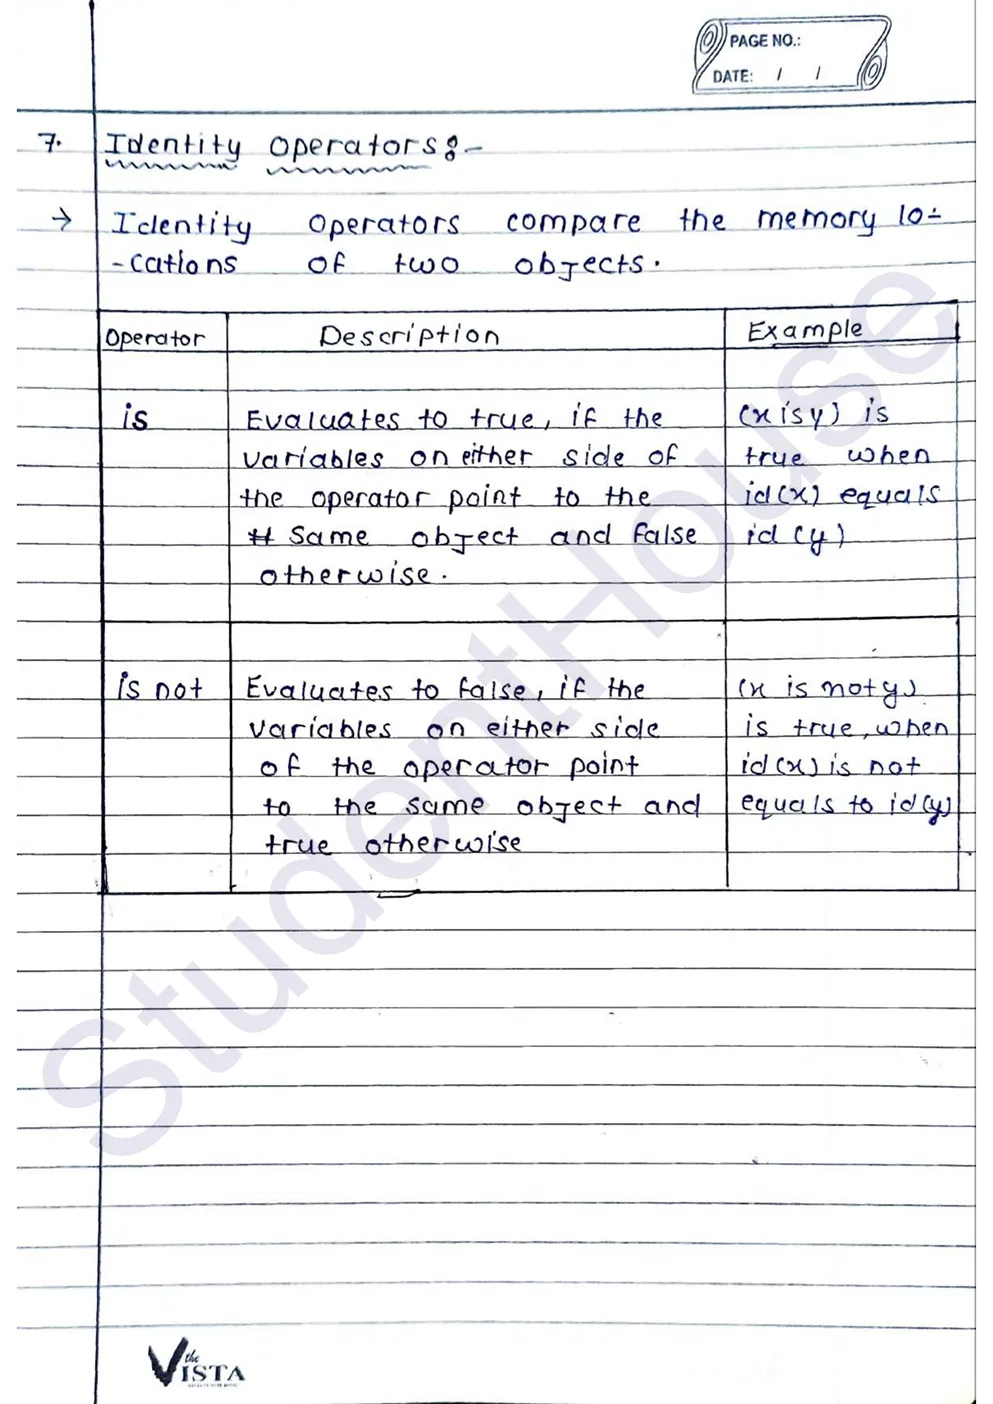 PAGE NO.:
DATE: / /
7. Identity operators:-
→ Identity operators compare the memory lo-
-cations of two objects.
Operator Description Example
is Evaluates to true, if the (x is y) is
variables on either side of true when
the operator point to the id(x) equals
same object and false id(y)
otherwise.
is not Evaluates to false, if the (x is not y)
variables on either side is true, when
of the operator point id(x) is not
to the same object and equals to id(y)
true otherwise
StudentHouse
the
VISTA